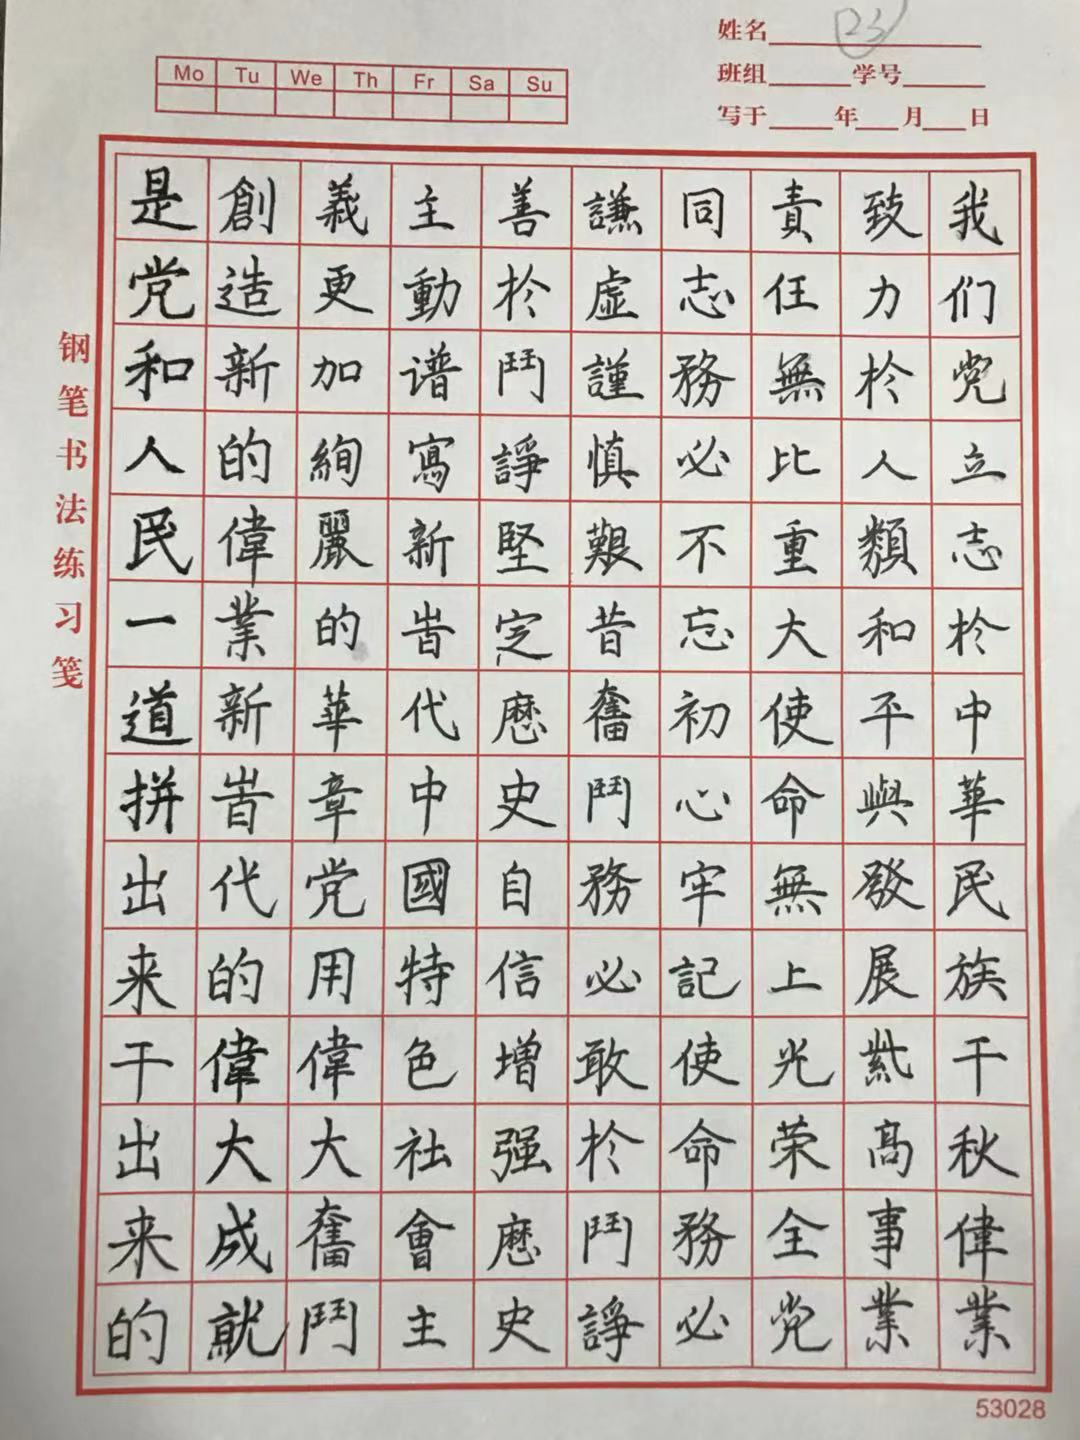 姓名
班组 学号
写于 年 月 日
Mo Tu We Th Fr Sa Su
钢笔书法练习笺
我们党立志於中華民族千秋偉業
致力於人類和平與發展紫高事業
責任無比重大使命無上光荣全党
同志務必不忘初心牢記使命務必
謙虚謹慎艱昔奮鬥務必敢於鬥諍
善於鬥諍堅定歷史自信增强歷史
主動谱寫新旹代中國特色社會主
義更加絢麗的華章党用偉大奮鬥
創造新的偉業新旹代的偉大成就
是党和人民一道拼出来干出来的
53028